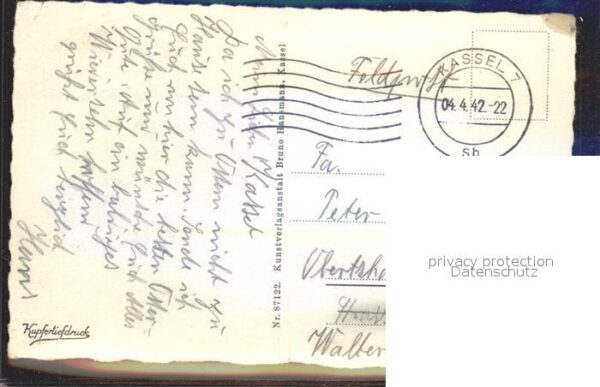 Meine Lieben Kassel
Da ich zu Ostern nicht zu
Hause sein kann, sende ich
Euch nur hier die besten Oster-
grüße und wünsche Euch alles
Gute. Auf ein baldiges
Wiedersehen hoffend
grüßt Euch herzlich
Hans
Kupfertiefdruck
Nr. 87122. Kunstverlagsanstalt Bruno Hansmann, Kassel
Feldpost
KASSEL 7
04.4.42-22
sb
Fa.
Peter
Walter
privacy protection
Datenschutz